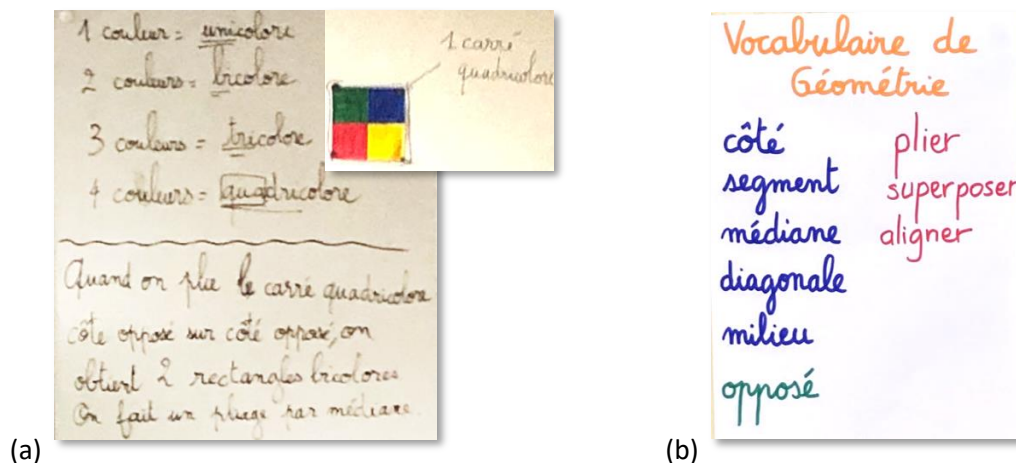 1 couleur = unicolore
2 couleurs = bicolore
3 couleurs = tricolore
4 couleurs = quadricolore
1 carré
quadricolore
Quand on plie le carré quadricolore
côte opposé sur côté opposé, on
obtient 2 rectangles bicolores.
On fait un pliage par médiane.
(a)
Vocabulaire de
Géométrie
côté plier
segment superposer
médiane aligner
diagonale
milieu
opposé
(b)